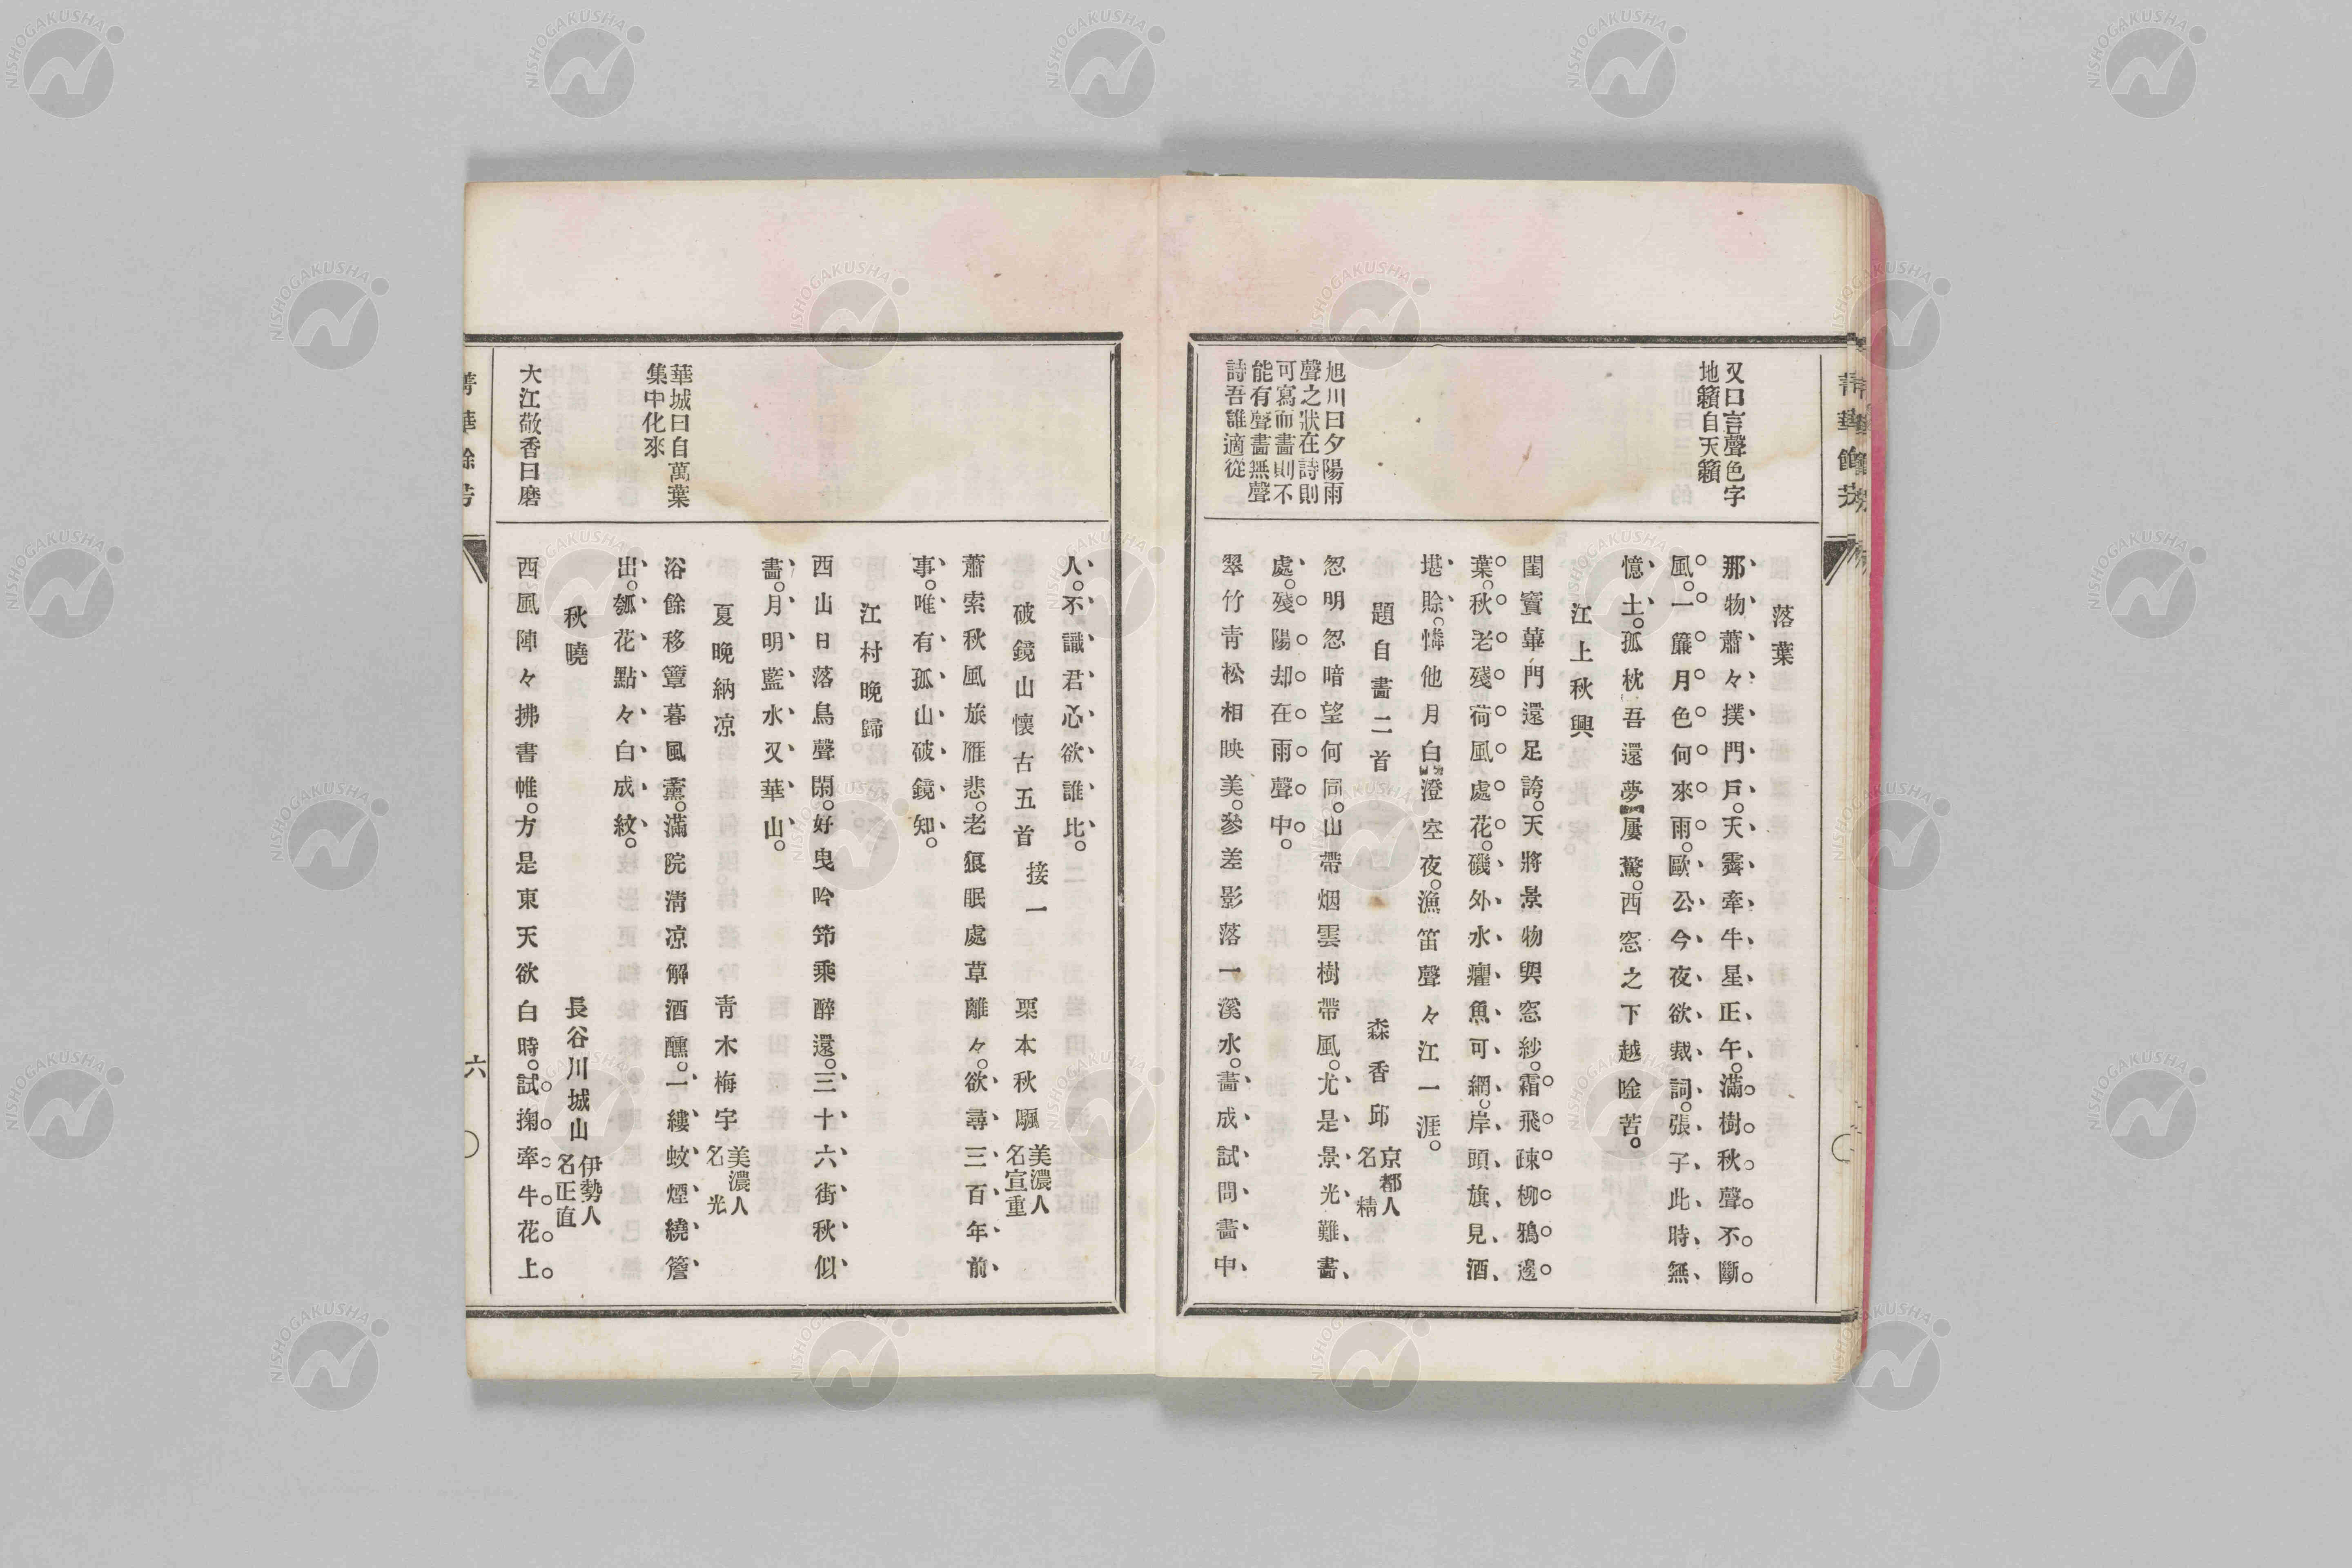 落葉
那物蕭々撲門戶。天霽牽牛星正午。滿樹秋聲不斷
風。一簾月色何來雨。歐公今夜欲裁詞。張子此時無
憶土。孤枕吾還夢屢驚。西窓之下越唫苦。
江上秋興
閨竇華門還足誇。天將景物與窓紗。霜飛疎柳鴉邊
葉。秋老殘荷風處花。磯外水癯魚可網。岸頭旗見酒
堪賒。憐他月白澄空夜。漁笛聲々江一涯。
題自畵二首 森香邱 京都人 名精
忽明忽暗望何同。山帶烟雲樹帶風。尤是景光難畵
處。殘陽却在雨聲中。
翠竹靑松相映美。參差影落一溪水。畵成試問畵中
又曰言聲色字
地籟自天籟
旭川曰夕陽雨
聲之狀在詩則
可寫而畵則不
能有聲畵無聲
詩吾誰適從
菁華餘芳
人。不識君心欲誰比。
破鏡山懷古五首接一 栗本秋颿 美濃人 名宣重
蕭索秋風旅雁悲。老狼眠處草離々。欲尋三百年前
事。唯有孤山破鏡知。
江村晚歸
西山日落鳥聲閑。好曳吟筇乘醉還。三十六街秋似
畵。月明藍水又華山。
夏晚納凉 靑木梅宇 美濃人 名光
浴餘移簟暮風薰。滿院淸凉解酒醺。一縷蚊煙繞簷
出。瓠花點々白成紋。
秋曉 長谷川城山 伊勢人 名正直
西風陣々拂書帷。方是東天欲白時。試掬牽牛花上
華城曰自萬葉
集中化來
大江敬香曰磨
菁華餘芳
六
NISHOGAKUSHA